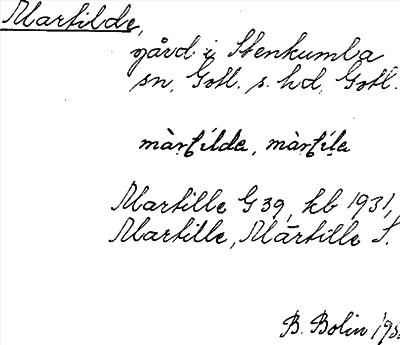 Martilde,
gård i Stenkumla
sn, Gotl. s. hd, Gotl.
màrtílda, màrtíla
Martille G 39, kb 1931,
Martille, Mārtille S.
B. Bolin